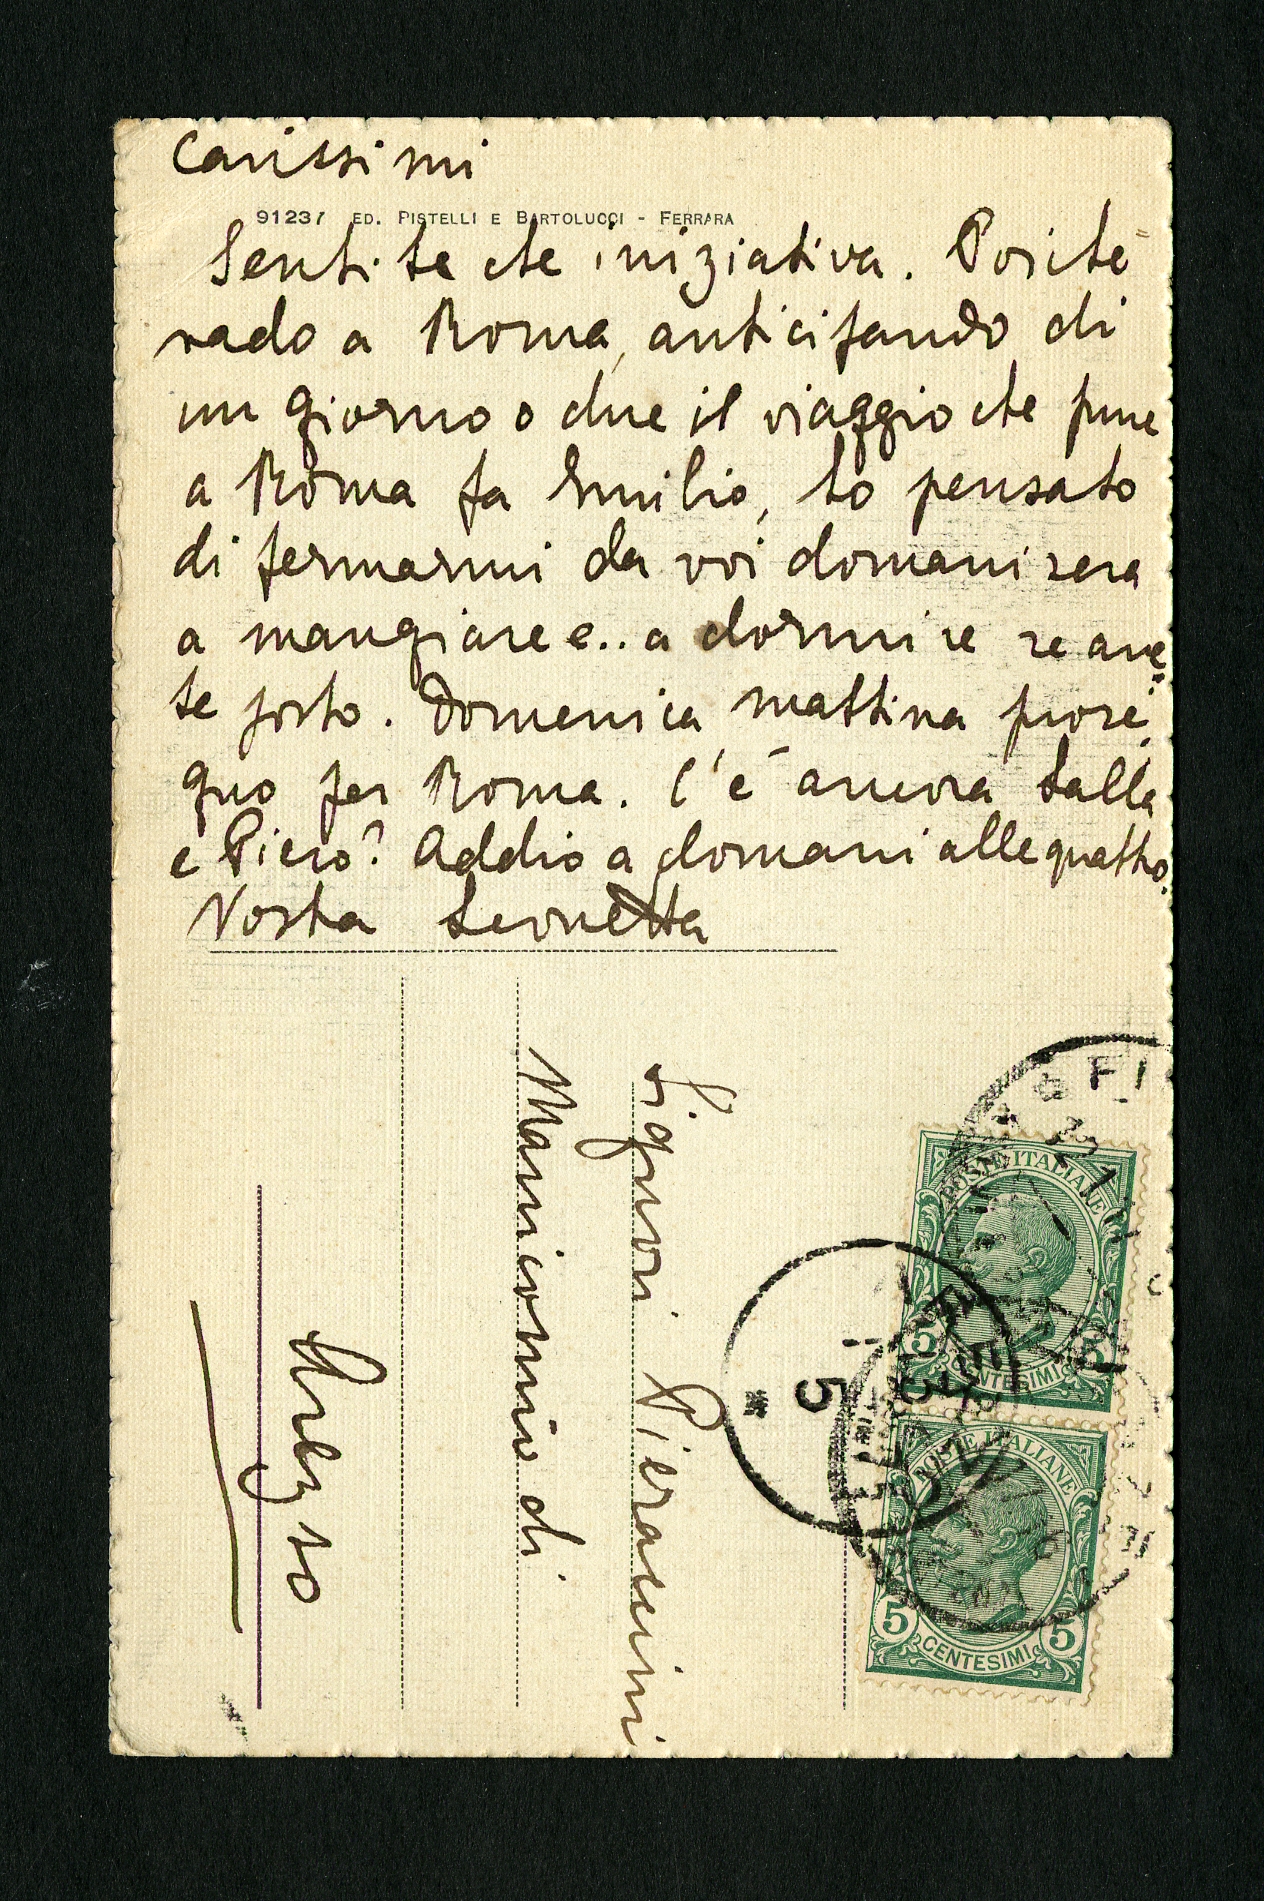 Carissimi
91237 ED. PISTELLI E BARTOLUCCI - FERRARA
Sentite che iniziativa. Poiché
vado a Roma, anticipando di
un giorno o due il viaggio che pure
a Roma fa Emilio, ho pensato
di fermarmi da voi domani sera
a mangiare e.. a dormire se ave=
te posto. Domenica mattina prose,
guo per Roma. C'è ancora Lalla
e Piero? Addio a domani alle quattro.
Vostra Leonetta
Signori Pieraccini
Manicomio di
Arezzo
FI
POSTE ITALIANE
5 5
CENTESIMI
POSTE ITALIANE
5 5
CENTESIMI
5